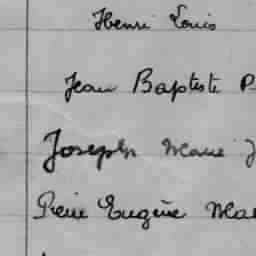 Henri Louis
Jean Baptiste P
Joseph Marie J
Pierre Eugène Mar